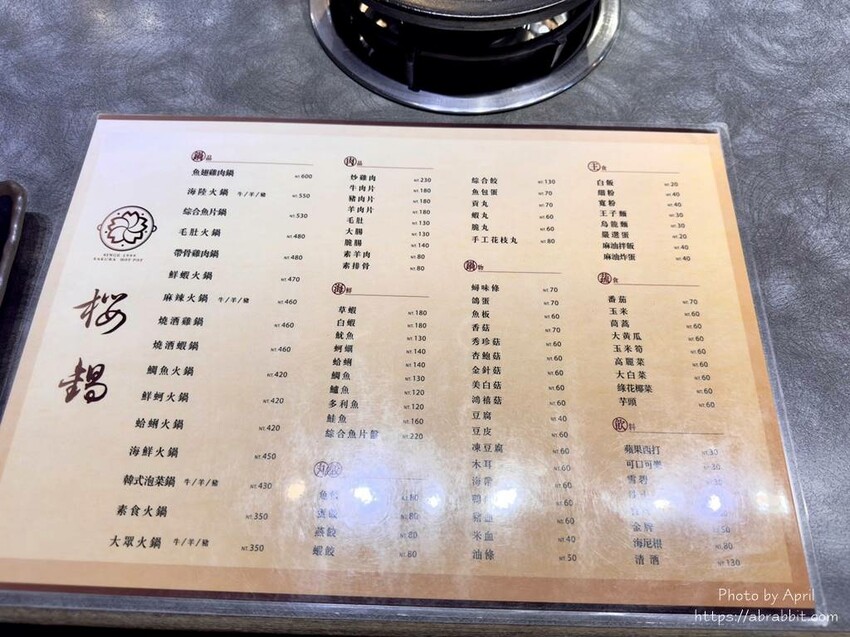 鍋品
魚翅雞肉鍋 NT.600
海陸火鍋 牛/羊/豬 NT.550
綜合魚片鍋 NT.530
毛肚火鍋 NT.480
帶骨雞肉鍋 NT.480
鮮蝦火鍋 NT.470
麻辣火鍋 牛/羊/豬 NT.460
燒酒雞鍋 NT.460
燒酒蝦鍋 NT.460
鯛魚火鍋 NT.420
鮮蚵火鍋 NT.420
蛤蜊火鍋 NT.420
海鮮火鍋 NT.450
韓式泡菜鍋 牛/羊/豬 NT.430
素食火鍋 NT.350
大眾火鍋 牛/羊/豬 NT.350
SINCE 1998
SAKURA HOT POT
桜鍋
肉品
炒雞肉 NT.230
牛肉片 NT.180
豬肉片 NT.180
羊肉片 NT.180
毛肚 NT.130
大腸 NT.130
脆腸 NT.140
素羊肉 NT.80
素排骨 NT.80
海鮮
草蝦 NT.180
白蝦 NT.180
魷魚 NT.130
蚵蠣 NT.140
蛤蜊 NT.140
鯛魚 NT.130
鱸魚 NT.120
多利魚 NT.120
鮭魚 NT.160
綜合魚片 NT.220
丸餃
魚餃 80
蛋餃 80
燕餃 NT.80
蝦餃 NT.80
綜合餃 NT.130
魚包蛋 NT.70
貢丸 NT.70
蝦丸 NT.60
脆丸 NT.60
手工花枝丸 NT.80
鍋物
蟳味條 NT.70
鴿蛋 NT.70
魚板 NT.60
香菇 NT.70
秀珍菇 NT.60
杏鮑菇 NT.60
金針菇 NT.60
美白菇 NT.60
鴻禧菇 NT.60
豆腐 NT.40
豆皮 NT.60
凍豆腐 NT.60
木耳 NT.60
海帶
鴨血
豬血
米血 NT.40
油條 NT.50
主食
白飯 NT.20
細粉 NT.40
寬粉 NT.40
王子麵 NT.30
烏龍麵 NT.30
嚴選蛋 NT.20
麻油拌飯 NT.40
麻油炸蛋 NT.40
蔬食
番茄 NT.70
玉米 NT.60
茼蒿 NT.60
大黃瓜 NT.60
玉米筍 NT.60
高麗菜 NT.60
大白菜 NT.60
綠花椰菜 NT.60
芋頭 NT.60
飲料
蘋果西打 NT.30
可口可樂 NT.30
雪碧 30
金牌 50
海尼根 NT.80
清酒 NT.130
Photo by April
https://abrabbit.com/